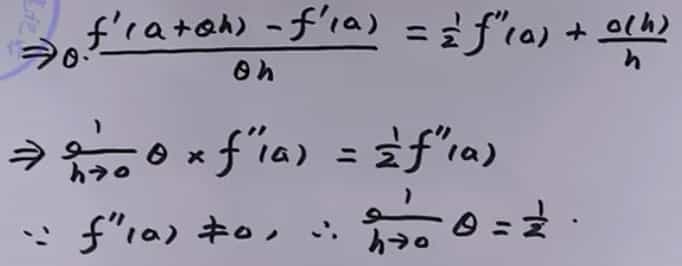 ⇒ θ · (f'(a+θh) - f'(a)) / (θh) = 1/2 f''(a) + o(h)/h
⇒ lim_{h→0} θ × f''(a) = 1/2 f''(a)
∵ f''(a) ≠ 0, ∴ lim_{h→0} θ = 1/2 .